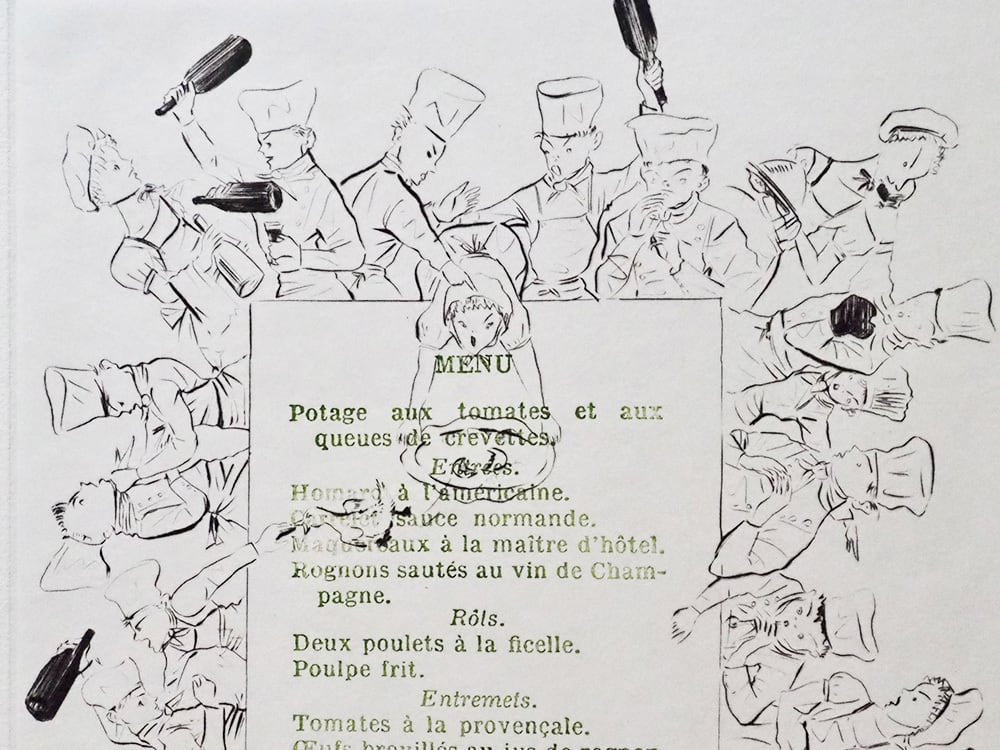 MENU
Potage aux tomates et aux
queues de crevettes.
Entrées.
Homard à l'américaine.
Carrelet sauce normande.
Maquereaux à la maître d'hôtel.
Rognons sautés au vin de Cham-
pagne.
Rôts.
Deux poulets à la ficelle.
Poulpe frit.
Entremets.
Tomates à la provençale.
Œufs brouillés au jus de rognon